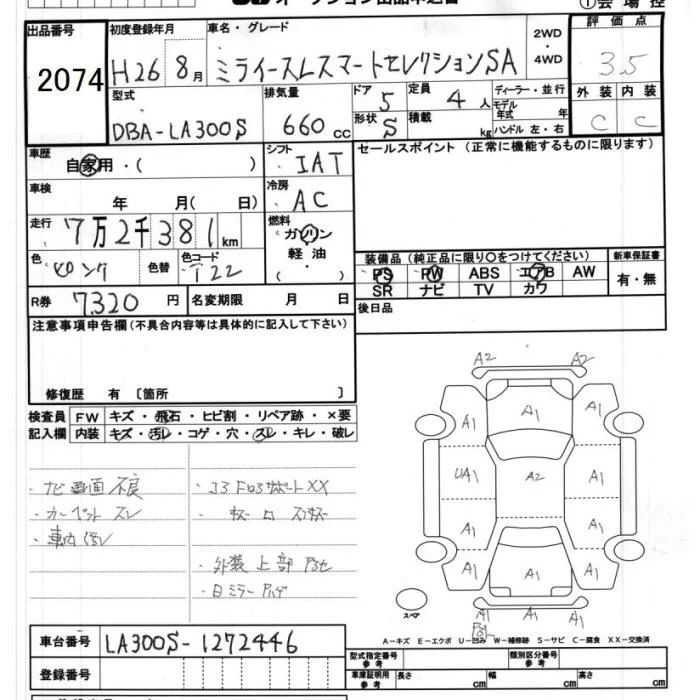 出品番号 2074
初度登録年月 H26 8月
車名・グレード ミライースLスマートセレクションSA
2WD・4WD
評価点 3.5
外装 C 内装 C
型式 DBA-LA300S
排気量 660cc
ドア 5 形状 S
定員 4人 積載 kg
ディーラー・並行
モデル年式 年
ハンドル 左・右
車歴 自家用・( )
シフト IAT
車検 年 月( 日)
冷房 AC
走行 7万2千381km
燃料 ガソリン 軽油 ( ・ )
色 ピンク 色替 色コード T22
R券 7320円 名変期限 月 日
セールスポイント(正常に機能するものに限ります)
装備品(純正品に限り○をつけてください) 新車保証書
PS PW ABS エアB AW 有・無
SR ナビ TV カワ
後日品
注意事項申告欄(不具合内容等は具体的に記入して下さい)
修復歴 有 〔箇所 〕
検査員記入欄 FW キズ・飛石・ヒビ割・リペア跡・×要
内装 キズ・汚レ・コゲ・穴・スレ・キレ・破レ
・ナビ画面不良
・カーペットスレ
・車内汚レ
・外装上部
A2 A2
A1 A1 A1
UA1 A2 A1
A1 A1
A1 A1 A1 A1
A1 A1 A1
スペア
A-キズ E-エクボ U-凹み W-補修跡 S-サビ C-腐食 XX-交換済
車台番号 LA300S-1272446
登録番号
型式指定番号 参考 類別区分番号 参考
車庫証明用 参考 長さ cm 幅 cm 高さ cm